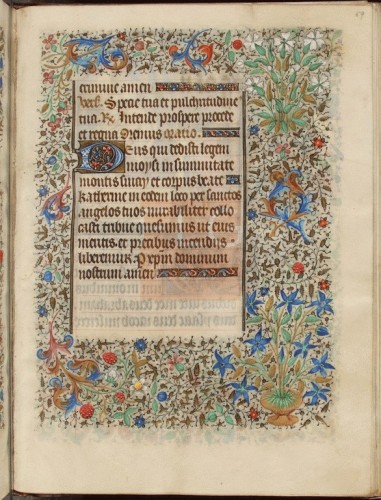 ecunue amen
Vers. Specie tua et pulchritudine
tua. R. Intende prospere procede
et regna Oremus oratio.
Deus qui dedisti legem
moysi in summitate
montis sinay et corpus beate
katherine in eodem loco per sanctos
angelos tuos mirabiliter collo
casti tribue quesumus ut eius
meritis et precibus incendijs
liberemur. Per xpm dominum
nostrum amen